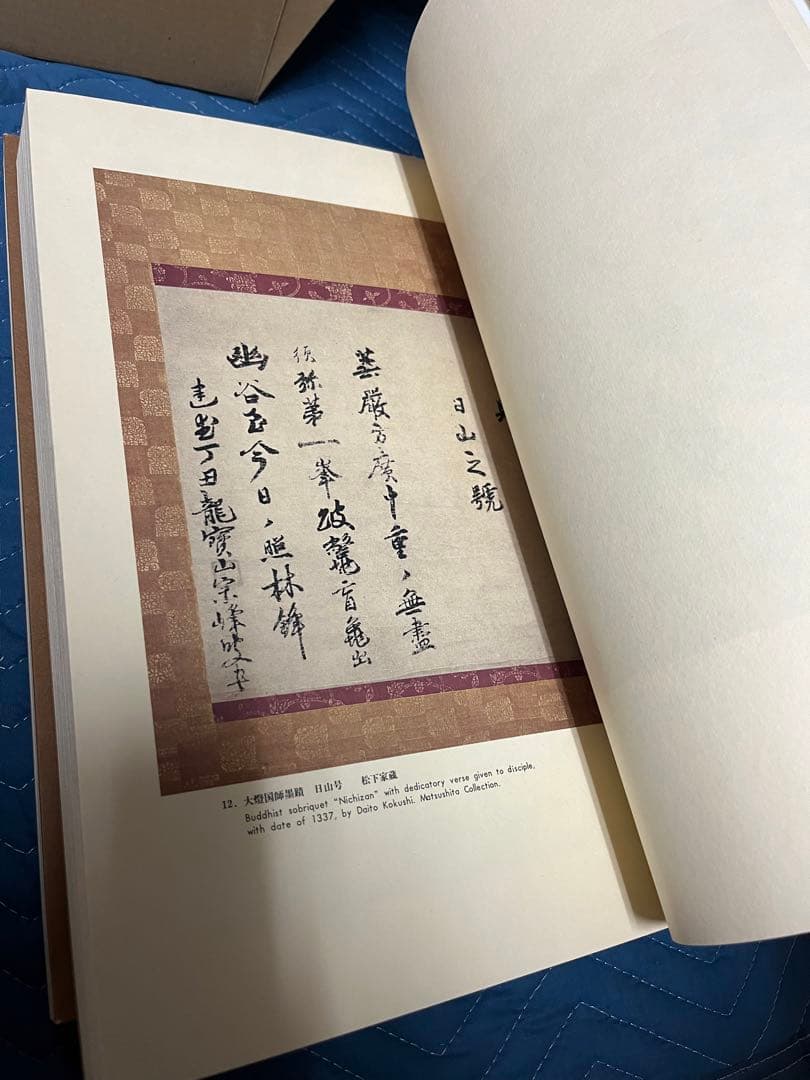 日山之號
華嚴方廣中重〻無盡
須弥第一峯跛鼈盲龜出
幽谷至今日〻照林鋒
建武丁丑龍寶山宗峰叟書
12. 大燈国師墨蹟 日山号 松下家蔵
Buddhist sobriquet "Nichizan" with dedicatory verse given to disciple,
with date of 1337, by Daito Kokushi. Matsushita Collection.